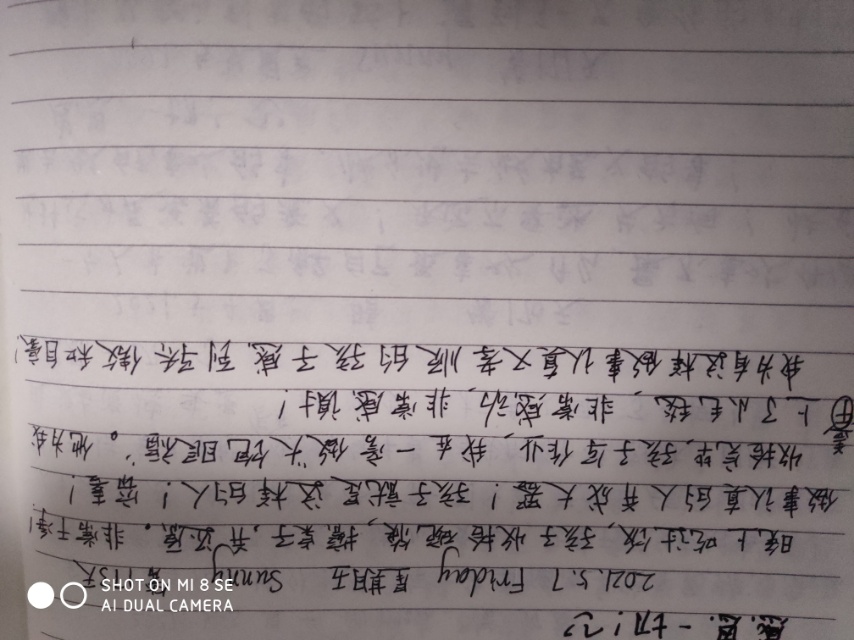 感恩一切！
2021.5.7 Friday 星期五 Sunny 第173天
晚上吃过饭，孩子收拾碗筷，擦桌子，并还原。非常干净！
做事认真的人有成大器！孩子就是这样的人！
收拾完毕，孩子写作业，我在一旁做“大饱眼福”。他为我
盖上了小毛毯，非常感动，非常感谢！
我为有这样做事认真又孝顺的孩子感到骄傲和自豪！
SHOT ON MI 8 SE
AI DUAL CAMERA